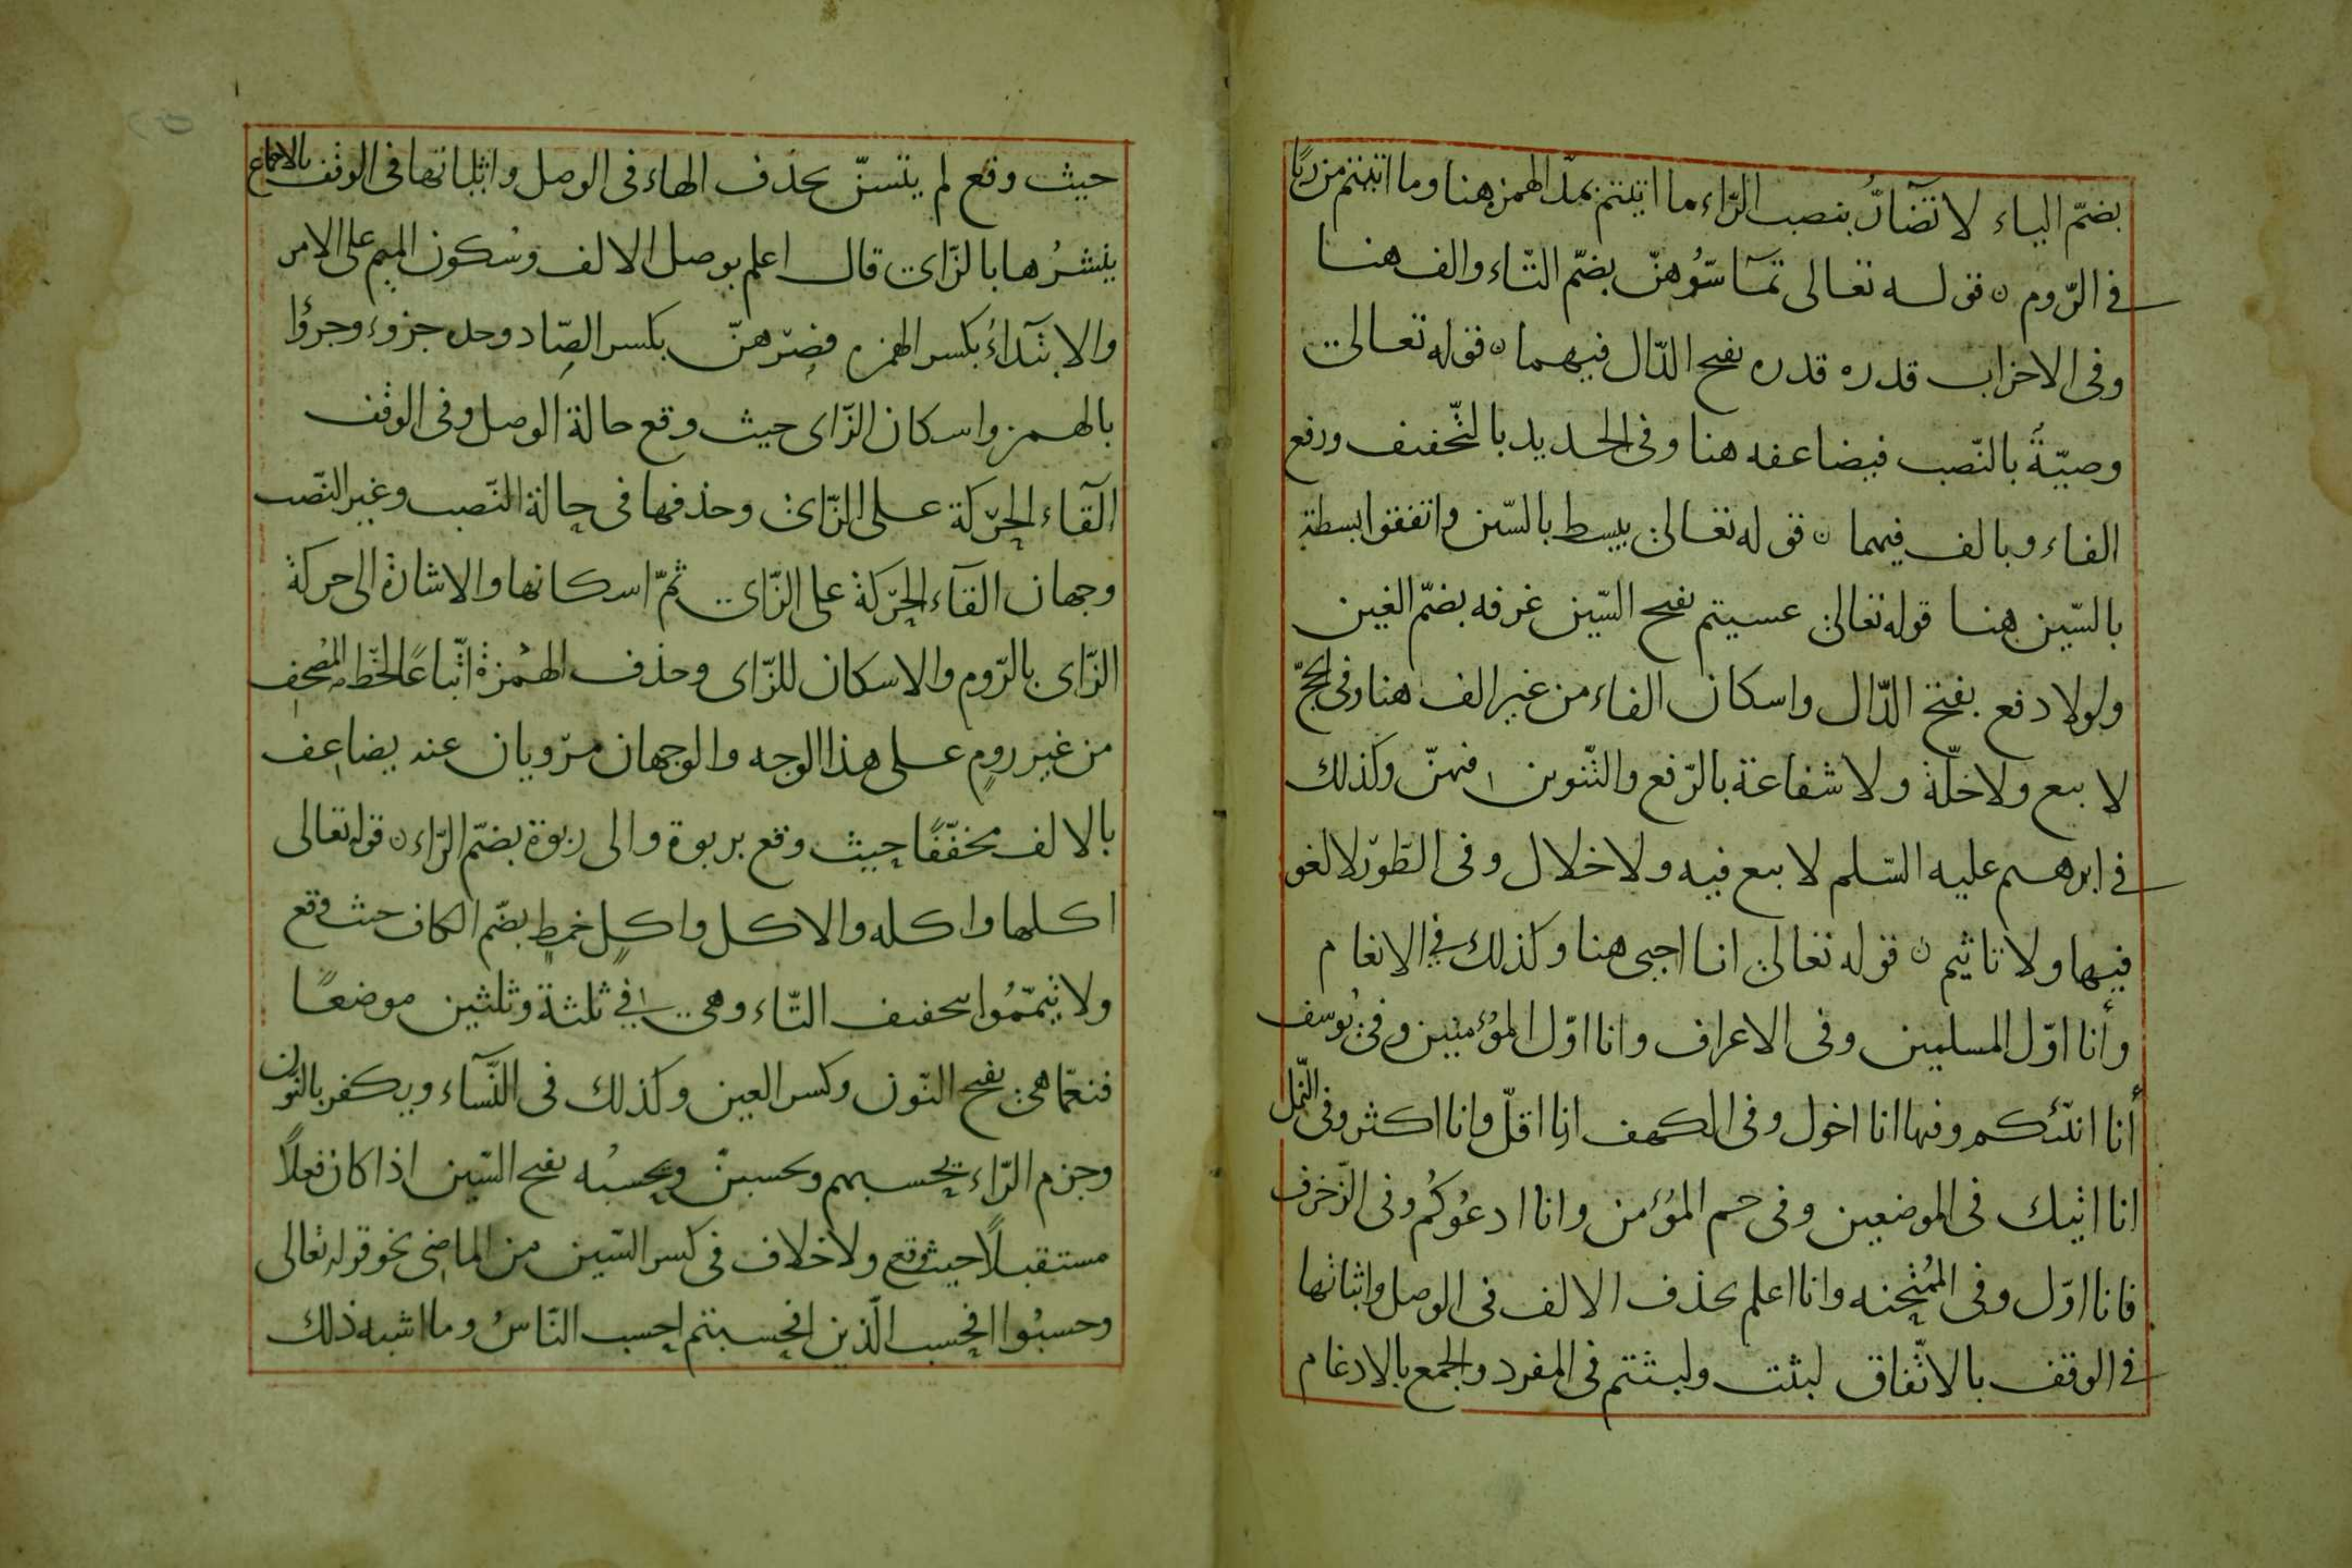 بضمّ الياء لا تضآرَّ بنصب الرّاء ما اتيتم بمدّ الهمزهنا وما اتيتم من ربًا
فى الرّوم ن قوله تعالى تمآسّوُهنّ بضمّ التّاء والف هنا
وفى الاحزاب قدره قدره بفتح الدّال فيهما ن قوله تعالى
وصيّةً بالنّصب فيضاعفه هنا وفى الحديد بالتّخفيف ورفع
الفاء وبالف فيهما ن قوله تعالى يبسط بالسّين واتفقوا بسطة
بالسّين هنا قوله تعالى عسيتم بفتح السّين غرفه بضمّ الغين
ولولا دفع بفتح الدّال واسكان الفاء من غير الف هنا وفى الحجّ
لا بيع ولا خلّة ولا شفاعة بالرّفع والتّنوين فيهنّ وكذلك
فى ابرهيم عليه السّلم لا بيع فيه ولا خلال وفى الطّور لا لغو
فيها ولا تاثيم ن قوله تعالى انا احيى هنا وكذلك فى الانعام
وأنا اوّل المسلمين وفى الاعراف وانا اوّل المؤمنين وفى يُوسف
أنا انبّئكم وفيها انا اخوك وفى الكهف انا اقلّ وانا اكثر وفى النّمل
انا اتيك فى الموضعين وفى حم المؤمن وانا ادعُوكُم وفى الزّخرف
فانا اوّل وفى المُمْتحنه وانا اعلم بحذف الالف فى الوصل واثباتها
فى الوقف بالاتّفاق لبثت ولبثتم فى المفرد والجمع بالادغام
حيث وقع لم يتسنّ بحذف الهاء فى الوصل واثباتها فى الوقف بالاجماع
ينشزُها بالزّاى قال اعلم بوصل الالف وسُكون الميم على الامر
والابتدآءُ بكسر الهمزه فصِرهنّ بكسر الصّاد وحده جزوء وجزؤا
بالهمز واسكان الزّاى حيث وقع حالة الوصل وفى الوقف
القآء الحرّكة على الزّاى وحذفها فى حالة النّصب وغير النّصب
وجهان القآء الحرّكة على الزّاى ثمّ اسكانها والاشارة الى حركة
الزّاى بالرّوم والاسكان للزّاى وحذف الهمْزة اتّباعًا لخطّ المُصحف
من غير رومٍ على هذا الوجه والوجهان مرّويان عنه يضاعف
بالالف مخفّفًا حيث وقع بربوة والى ربوة بضمّ الرّاء ن قوله تعالى
اكلها واكله والاكل واكلٍ خمطٍ بضمّ الكاف حيث وقع
ولا تيمّمُوا بتخفيف التّاء وهى فى ثلثة وثلثين موضعًا
فنعمّا هى بفتح النّون وكسر العين وكذلك فى النّسآء ويكفر بالنّون
وجزم الرّاء يحسبهم وتحسبنّ ويحسبُه بفتح السّين اذا كان فعلًا
مستقبلًا حيث وقع ولا خلاف فى كسر السّين من الماضى نحو قوله تعالى
وحسبُوا افحسب الّذين افحسبتم احسب النّاسُ وما اشبه ذلك